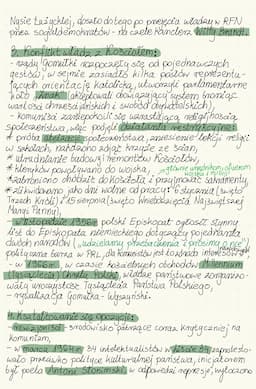 Nysie Łużyckiej, doszło do tego po przejęciu władzy w RFN
przez socjaldemokratów - na czele kanclerz Willy Brandt.
3. Konflikt władz z Kościołem:
- rządy Gomułki rozpoczęły się od pojednawczych
gestów, w sejmie zasiadło kilka posłów reprezentu-
jących orientację katolicką, utworzyli parlamentarne
koło "Znak" (akceptowali obowiązujący system broniąc
wartości chrześcijańskich i swobód obywatelskich),
- komuniści zaniepokoili się wzrastającą religijnością
społeczeństwa, więc podjęli działania restrykcyjne:
* próba ateizacji społeczeństwa, zniesienie lekcji religii
w szkołach, nakazano zdjąć krzyże ze ścian,
* utrudnianie budowy i remontów kościołów,
* kleryków powoływano do wojska,
* zabroniono chodzić do kościoła i przyjmować sakramenty
* zlikwidowano jako dni wolne od pracy: 6 stycznia (święto
Trzech Króli) i 15 sierpnia (święto Wniebowzięcia Najświętszej
Maryi Panny),
- w listopadzie 1965r. polski Episkopat ogłosił słynny
list do Episkopatu niemieckiego dotyczący pojednania
dwóch narodów ("udzielamy przebaczenia i prosimy o nie")
- w 1966r. w czasie kościelnych obchodów Millennium
(Tysiąclecia) Chrztu Polski, władze państwowe zorganizo-
wały uroczystość Tysiąclecia Państwa Polskiego,
- rywalizacja Gomułka - Wyszyński.
4. Kształtowanie się opozycji:
- rewizjoniści - środowisko patrzące coraz krytyczniej na
komunizm,
- w marcu 1964r. 34 intelektualistów w liście 34 zaprotesto-
wało przeciwko polityce kulturalnej państwa, inicjatorem
był poeta Antoni Słonimski, w odpowiedzi represje, wytoczono